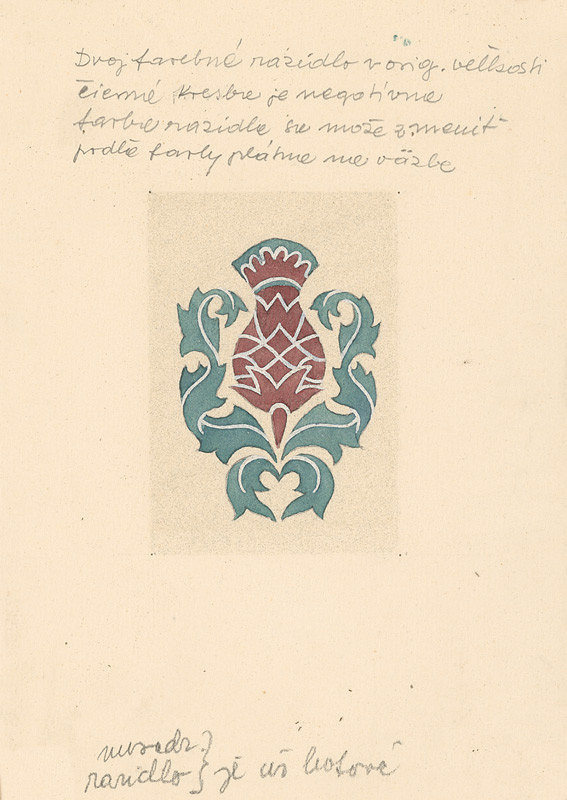 Dvoj farebné razidlo v orig. veľkosti
čierné kresba je negatívna
farba razidla sa može zmeniť
podľa farby plátna na väzbe
razidlo } je už hotové